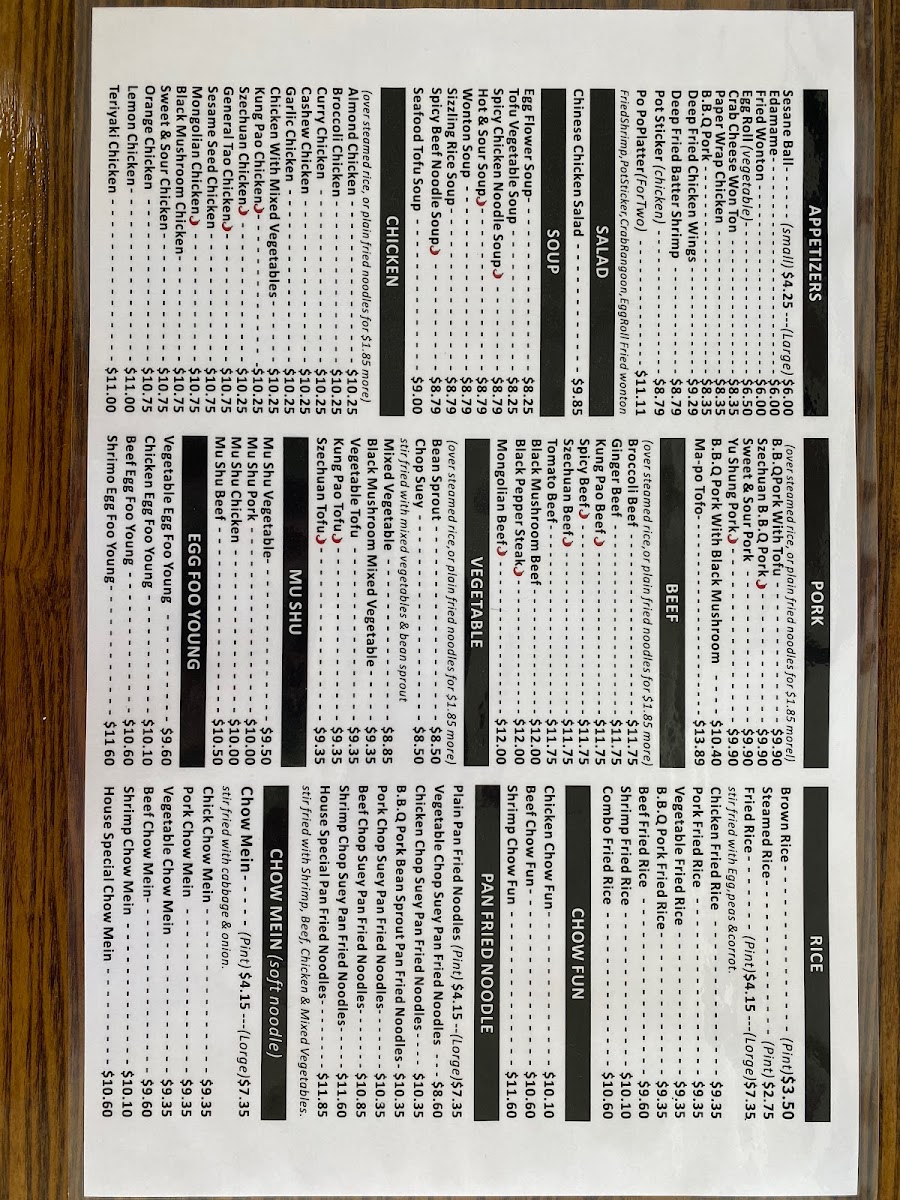 APPETIZERS
Sesane Ball - - - - - (small) $4.25 ---(Large) $6.00
Edamame - - - - - - - - - - - - - - - - $6.00
Fried Wonton - - - - - - - - - - - - - - $6.00
Egg Roll (vegetable)- - - - - - - - - - - - $6.50
Crab Cheese Won Ton - - - - - - - - - - - $8.35
Paper Wrap Chicken - - - - - - - - - - - - $8.35
B.B.Q Pork - - - - - - - - - - - - - - - $8.35
Deep Fried Chicken Wings - - - - - - - - - $9.29
Deep Fried Batter Shrimp - - - - - - - - - $8.79
Pot Sticker (chicken) - - - - - - - - - - - $8.79
Po PoPlatter(For Two) - - - - - - - - - - - $11.11
FriedShrimp,PotSticker,CrabRangoon,EggRoll Fried wonton
SALAD
Chinese Chicken Salad - - - - - - - - - - $9.85
SOUP
Egg Flower Soup- - - - - - - - - - - - - $8.25
Tofu Vegetable Soup - - - - - - - - - - - $8.25
Spicy Chicken Noodle Soup - - - - - - - - $8.79
Hot & Sour Soup - - - - - - - - - - - - - $8.79
Wonton Soup - - - - - - - - - - - - - - $8.79
Sizzling Rice Soup- - - - - - - - - - - - $8.79
Spicy Beef Noodle Soup - - - - - - - - - $8.79
Seafood Tofu Soup - - - - - - - - - - - - $9.00
CHICKEN
(over steamed rice, or plain fried noodles for $1.85 more)
Almond Chicken - - - - - - - - - - - - - $10.25
Broccoli Chicken - - - - - - - - - - - - - $10.25
Curry Chicken - - - - - - - - - - - - - - $10.25
Cashew Chicken - - - - - - - - - - - - - $10.25
Garlic Chicken - - - - - - - - - - - - - - $10.25
Chicken With Mixed Vegetables - - - - - - $10.25
Kung Pao Chicken - - - - - - - - - - - - -$10.25
Szechuan Chicken - - - - - - - - - - - - $10.25
General Tao Chicken - - - - - - - - - - - $10.75
Sesame Seed Chicken - - - - - - - - - - - $10.75
Mongolian Chicken - - - - - - - - - - - - $10.75
Black Mushroom Chicken- - - - - - - - - - $10.75
Sweet & Sour Chicken- - - - - - - - - - - $10.75
Orange Chicken - - - - - - - - - - - - - $10.75
Lemon Chicken- - - - - - - - - - - - - - $11.00
Teriyaki Chicken - - - - - - - - - - - - - $11.00
PORK
(over steamed rice, or plain fried noodles for $1.85 more!)
B.B.QPork With Tofu - - - - - - - - - - - $9.90
Szechuan B.B.Q Pork - - - - - - - - - - - $9.90
Sweet & Sour Pork - - - - - - - - - - - - $9.90
Yu Shung Pork - - - - - - - - - - - - - - $9.90
B.B.Q Pork With Black Mushroom - - - - - $10.40
Ma-po Tofo- - - - - - - - - - - - - - - $13.89
BEEF
(over steamed rice,or plain fried noodles for $1.85 more)
Broccoli Beef - - - - - - - - - - - - - - $11.75
Ginger Beef - - - - - - - - - - - - - - - $11.75
Kung Pao Beef - - - - - - - - - - - - - - $11.75
Spicy Beef - - - - - - - - - - - - - - - $11.75
Szechuan Beef - - - - - - - - - - - - - - $11.75
Tomato Beef- - - - - - - - - - - - - - - $11.75
Black Mushroom Beef - - - - - - - - - - - $12.00
Black Pepper Steak - - - - - - - - - - - - $12.00
Mongolian Beef - - - - - - - - - - - - - $12.00
VEGETABLE
(over steamed rice,or plain fried noodles for $1.85 more)
Bean Sprout - - - - - - - - - - - - - - - $8.50
Chop Suey - - - - - - - - - - - - - - - - $8.50
stir fried with mixed vegetables & bean sprout
Mixed Vegetable - - - - - - - - - - - - - $8.85
Black Mushroom Mixed Vegetable - - - - - $9.35
Vegetable Tofu - - - - - - - - - - - - - - $9.35
Kung Pao Tofu - - - - - - - - - - - - - - $9.35
Szechuan Tofu - - - - - - - - - - - - - - $9.35
MU SHU
Mu Shu Vegetable- - - - - - - - - - - - - $9.50
Mu Shu Pork - - - - - - - - - - - - - - - $10.00
Mu Shu Chicken - - - - - - - - - - - - - $10.00
Mu Shu Beef - - - - - - - - - - - - - - - $10.50
EGG FOO YOUNG
Vegetable Egg Foo Young - - - - - - - - - $9.60
Chicken Egg Foo Young - - - - - - - - - - $10.10
Beef Egg Foo Young - - - - - - - - - - - $10.60
Shrimo Egg Foo Young- - - - - - - - - - - $11 60
RICE
Brown Rice- - - - - - - - - - - - - (Pint)$3.50
Steamed Rice- - - - - - - - - - - - (Pint) $2.75
Fried Rice- - - - - (Pint)$4.15 ---(Lorge)$7.35
stir fried with Egg,peas &carrot.
Chicken Fried Rice - - - - - - - - - - - - $9.35
Pork Fried Rice - - - - - - - - - - - - - $9.35
Vegetable Fried Rice - - - - - - - - - - - $9.35
B.B.Q Pork Fried Rice- - - - - - - - - - - $9.35
Beef Fried Rice - - - - - - - - - - - - - $9.60
Shrimp Fried Rice - - - - - - - - - - - - $10.10
Combo Fried Rice - - - - - - - - - - - - $10.60
CHOW FUN
Chicken Chow Fun- - - - - - - - - - - - $10.10
Beef Chow Fun- - - - - - - - - - - - - - $10.60
Shrimp Chow Fun - - - - - - - - - - - - - $11.60
PAN FRIED NOODLE
Plain Pan Fried Noodles (Pint) $4.15 --(Lorge)$7.35
Vegetable Chop Suey Pan Fried Noodles - - $8.60
Chicken Chop Suey Pan Fried Noodles- - - - $10.35
B.B.Q Pork Bean Sprout Pan Fried Noodles - $10.35
Pork Chop Suey Pan Fried Noodles- - - - - $10.35
Beef Chop Suey Pan Fried Noodles- - - - - $10.85
Shrimp Chop Suey Pan Fried Noodles- - - - $11.60
House Special Pan Fried Noodles- - - - - - $11.85
stir fried with Shrimp, Beef, Chicken & Mixed Vegetables.
CHOW MEIN (soft noodle)
Chow Mein- - - - (Pint) $4.15 ---(Lorge)$7.35
stir fried with cabbage & onion.
Chick Chow Mein - - - - - - - - - - - - - $9.35
Pork Chow Mein - - - - - - - - - - - - - $9.35
Vegetable Chow Mein - - - - - - - - - - - $9.35
Beef Chow Mein- - - - - - - - - - - - - - $9.60
Shrimp Chow Mein - - - - - - - - - - - - $10.10
House Special Chow Mein - - - - - - - - - $10.60